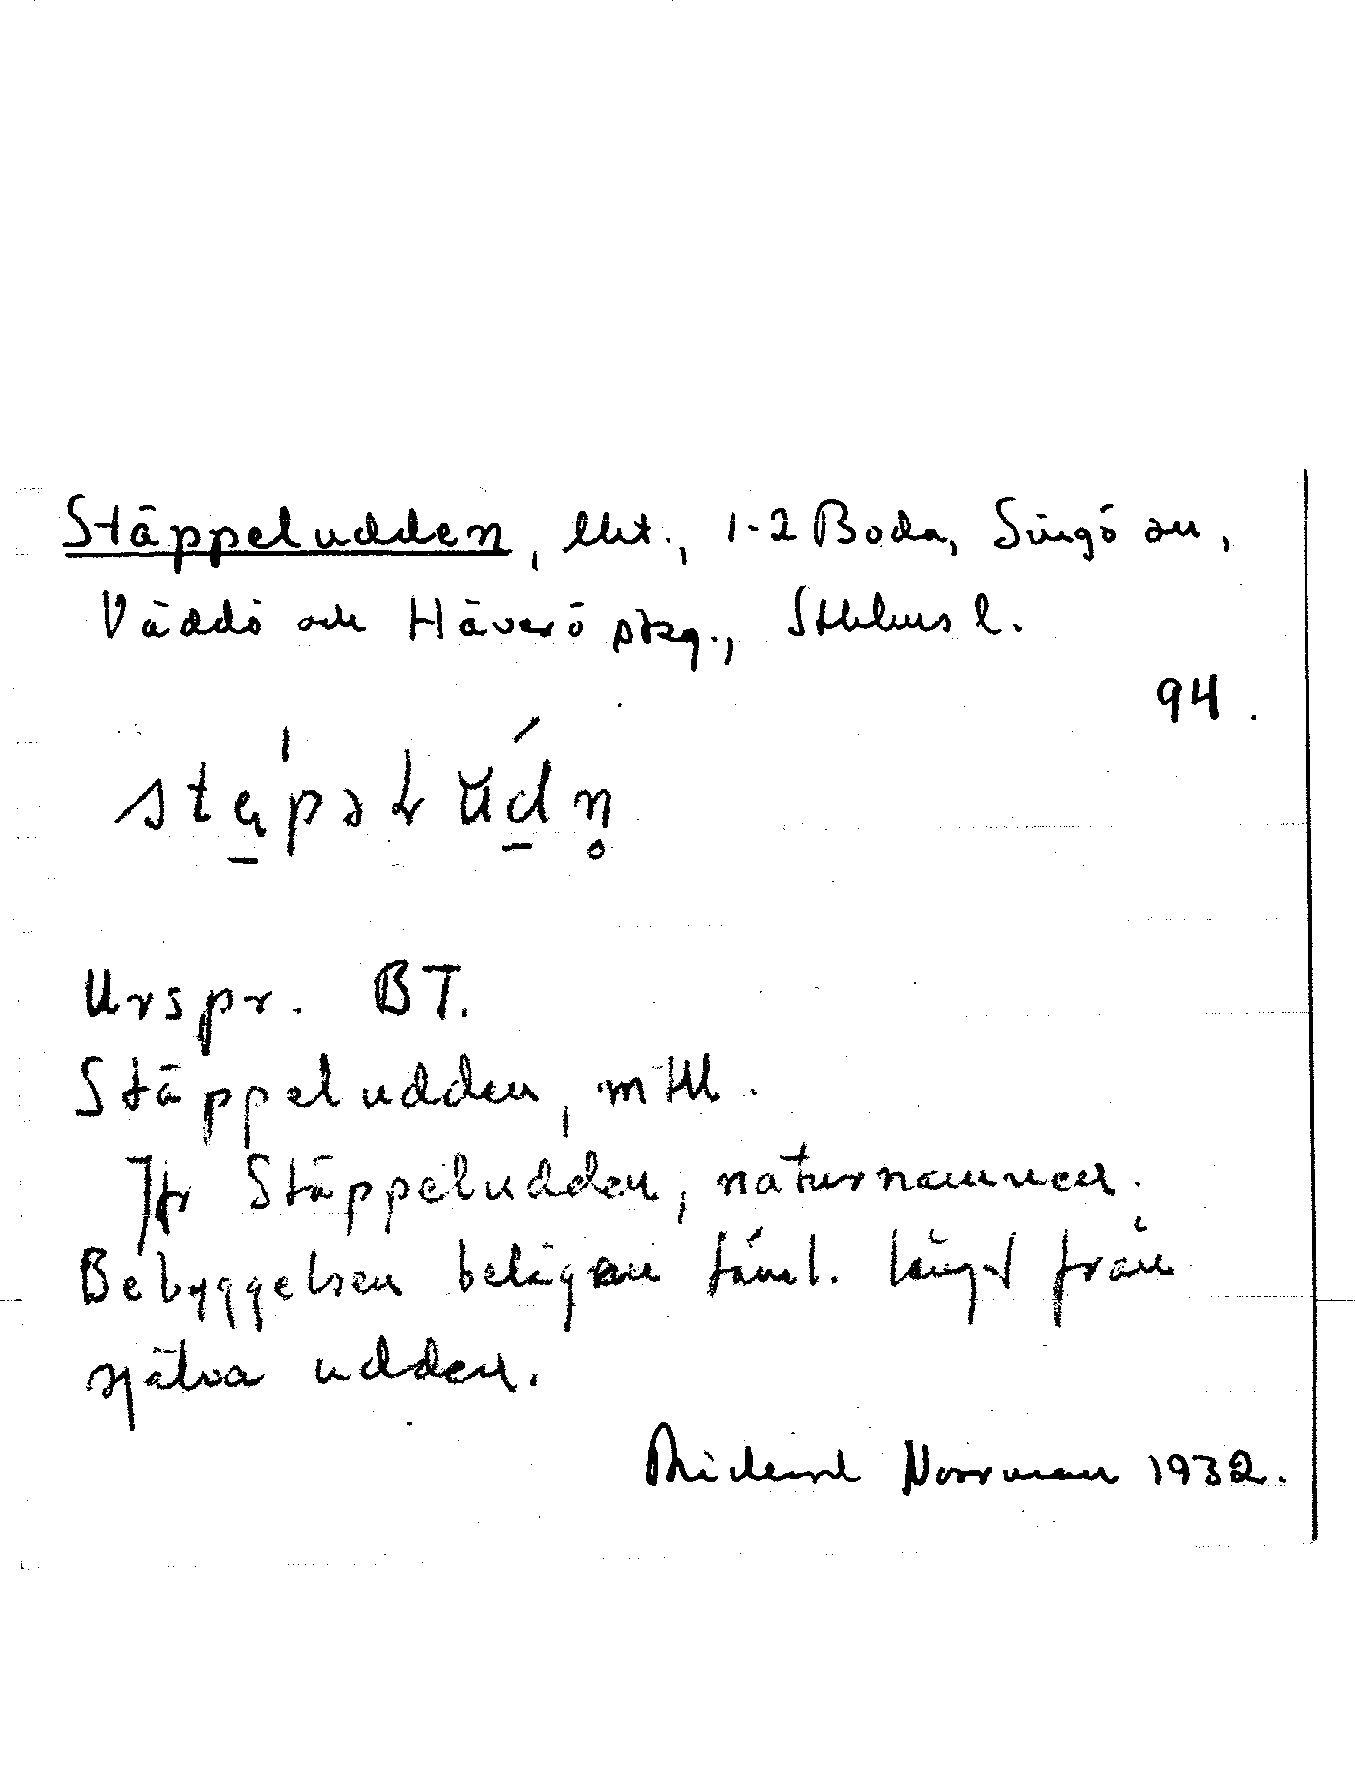 Stäppeludden, lht., 1-2 Boda, Singö sn,
Väddö och Häverö skg., Sthlms l.
94.
Urspr. BT.
Stäppeludden, mtbl.
Jfr Stäppeludden, naturnamnen.
Bebyggelsen belägen täml. långt från
själva udden.
Norrman 1932.